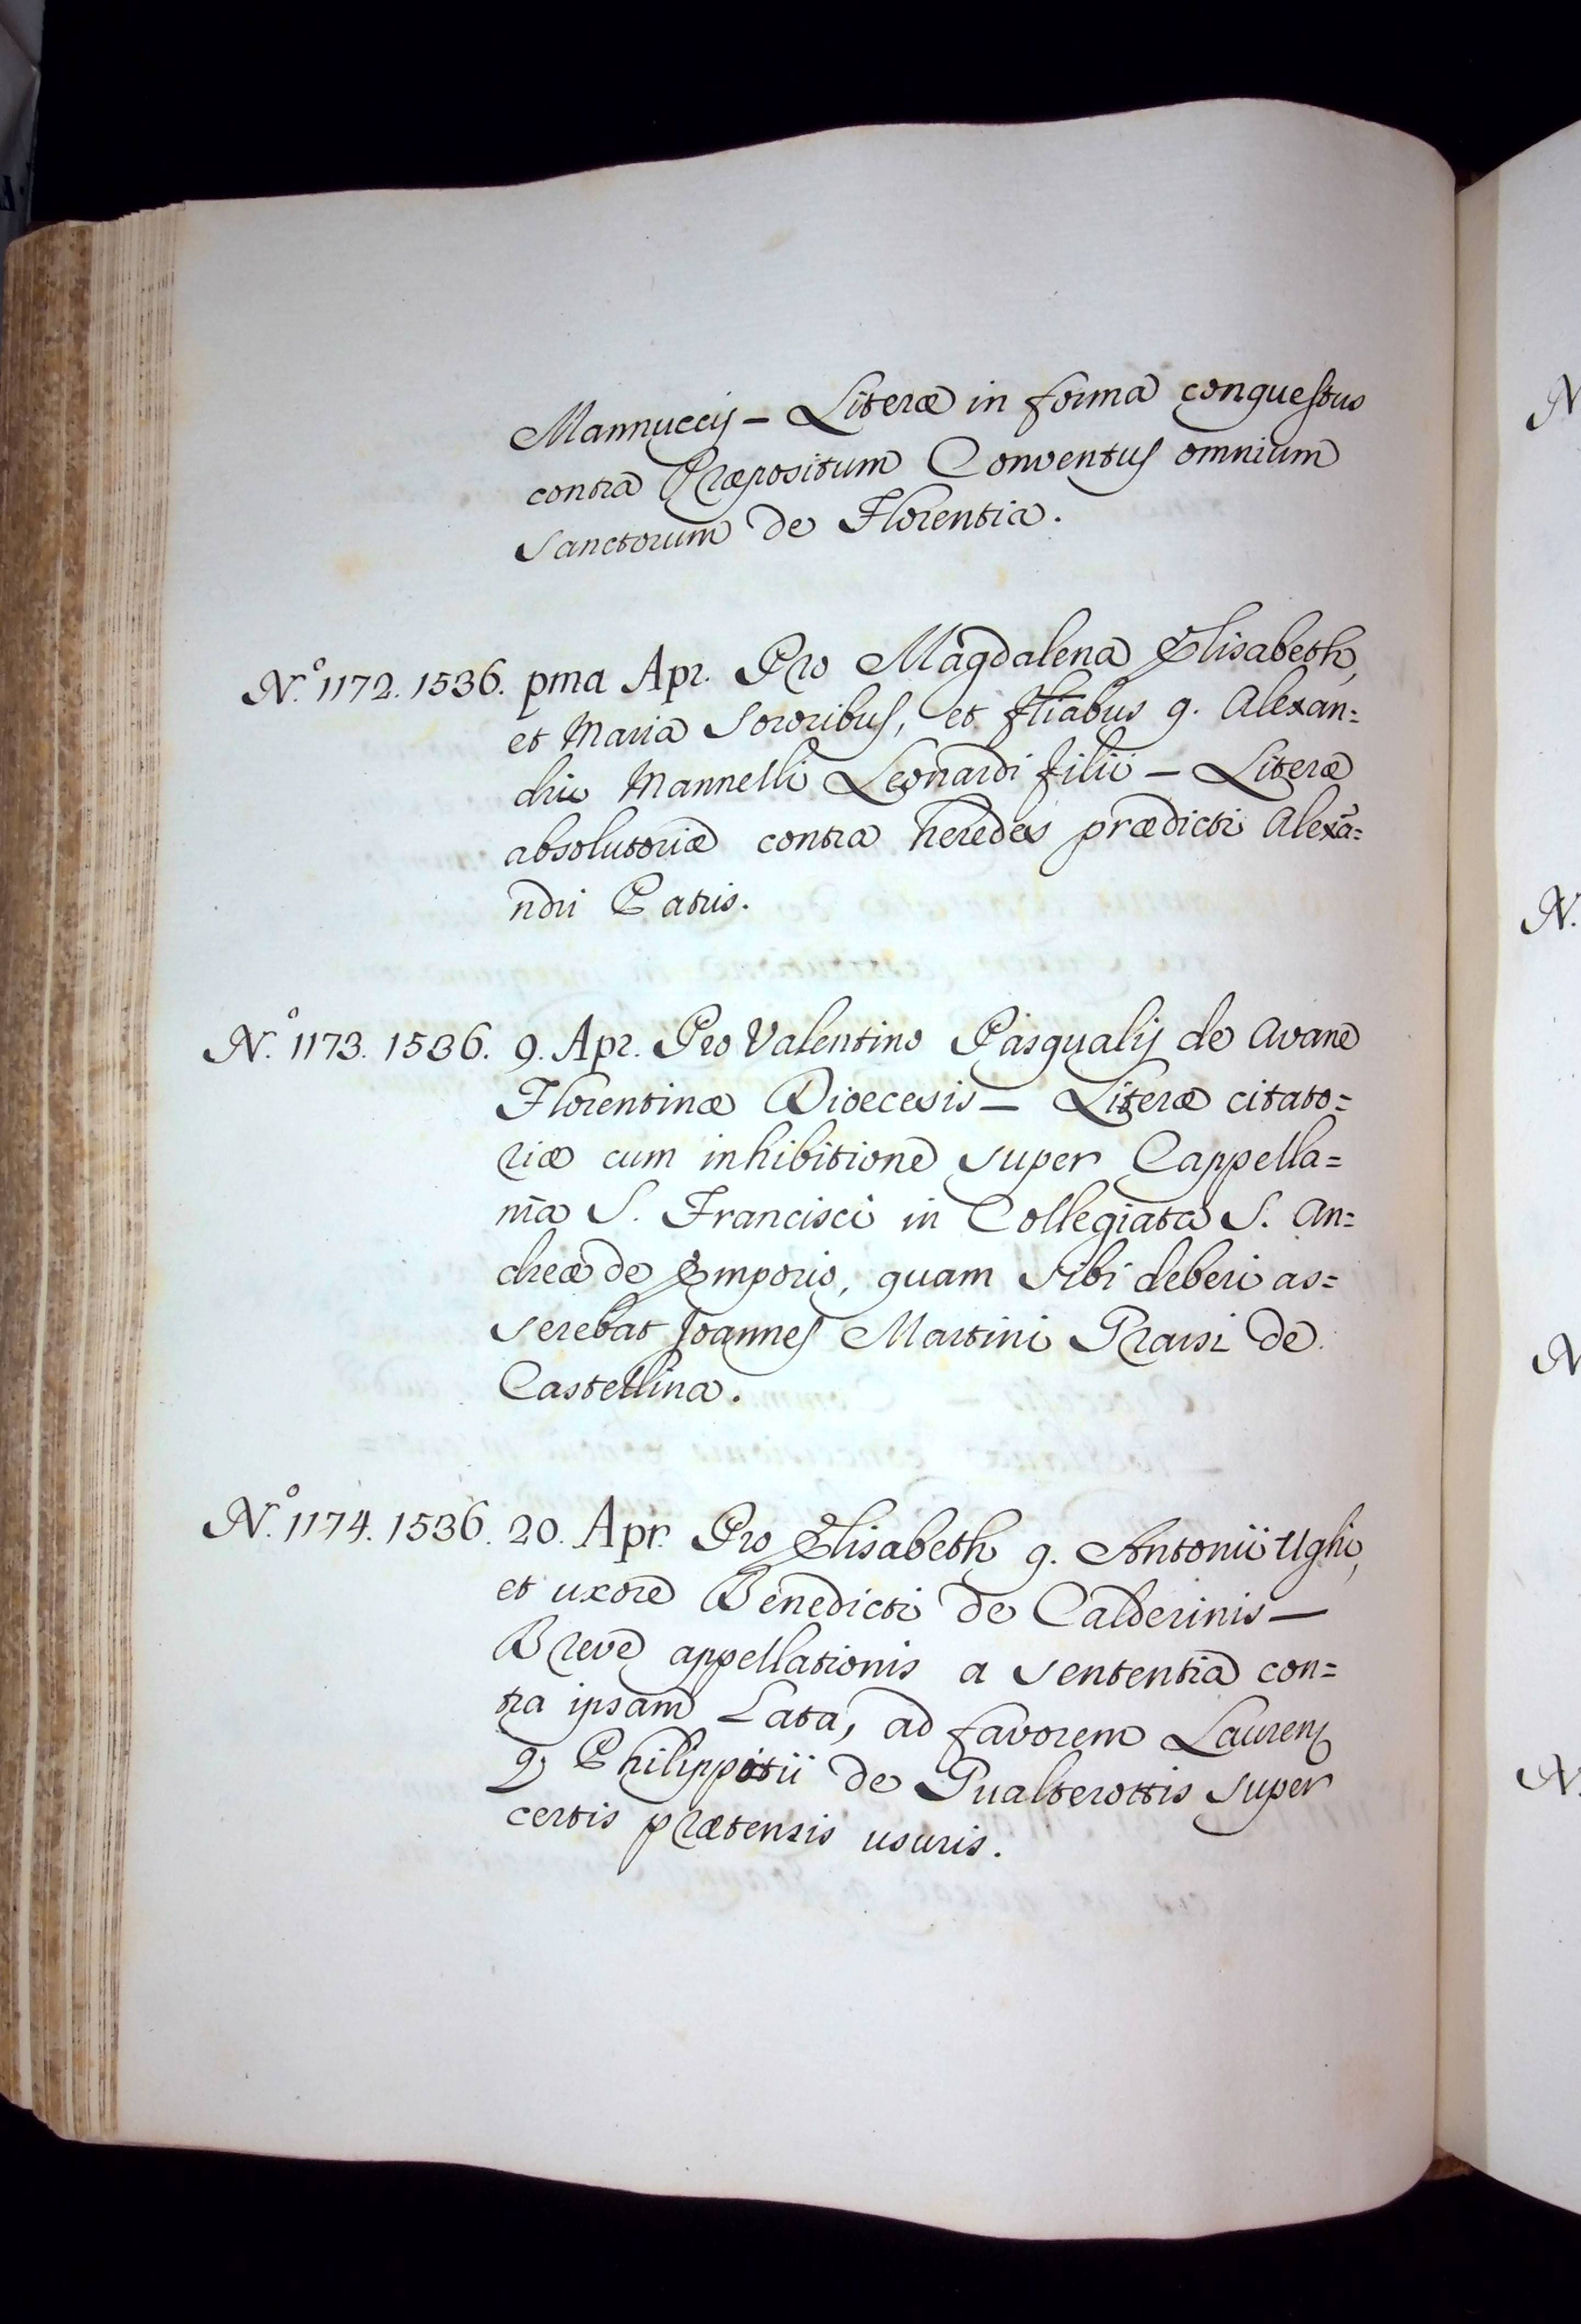 Mannuccij – Literæ in forma conquestus
contra Præpositum Conventus omnium
Sanctorum de Florentia.
N.º 1172. 1536. pma Apr. Pro Magdalena Elisabeth,
et Maria Sororibus, et filiabus q. Alexan=
dri Mannelli Leonardi filii – Literæ
absolutoriæ contra heredes prædicti Alexã=
ndri Patris.
N.º 1173. 1536. 9. Apr. Pro Valentino Pasqualis de Avane
Florentinæ Dioecesis – Literæ citato=
riæ cum inhibitione super Cappella=
nia S. Francisci in Collegiata S. An=
dreæ de Emporio, quam sibi deberi as=
serebat Joannes Martini de
Castellina.
N.º 1174. 1536. 20. Apr. Pro Elisabeth q. Antonii Ughi,
et uxore Benedicti de Calderinis –
Breve appellationis a sententia con=
tra ipsam Lata, ad favorem
q. de Gualterottis super
certis prætensis usuris.
N
N.
N
N.